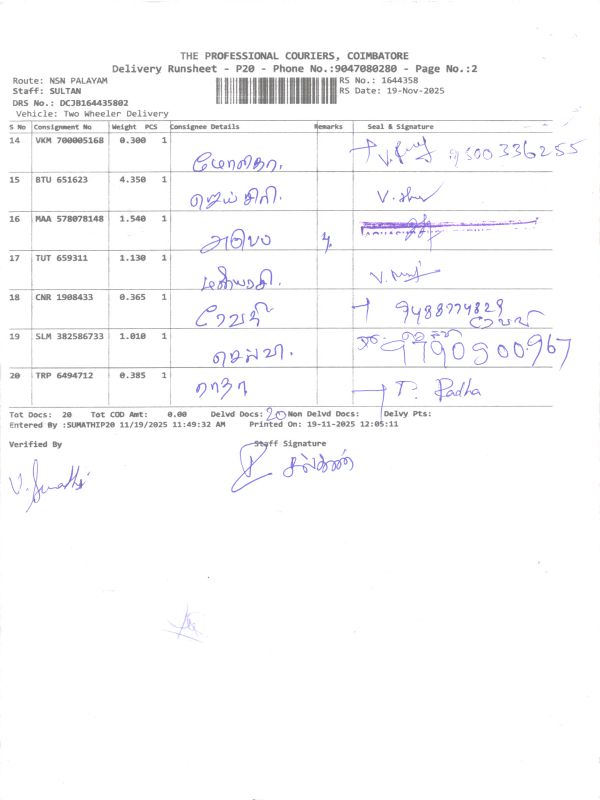 THE PROFESSIONAL COURIERS, COIMBATORE
Delivery Runsheet - P20 - Phone No.:9047080280 - Page No.:2
Route: NSN PALAYAM RS No.: 1644358
Staff: SULTAN RS Date: 19-Nov-2025
DRS No.: DCJB164435802
Vehicle: Two Wheeler Delivery
S No Consignment No Weight PCS Consignee Details Remarks Seal & Signature
14 VKM 700005168 0.300 1 9500336255
15 BTU 651623 4.350 1 ஜெய்ஸ்ரீ
16 MAA 578078148 1.540 1
17 TUT 659311 1.130 1
18 CNR 1908433 0.365 1 ரேவதி 9488774829
19 SLM 382586733 1.010 1 செல்வா. 9790900967
20 TRP 6494712 0.385 1 ராதா T. Radha
Tot Docs: 20 Tot COD Amt: 0.00 Delvd Docs: 20 Non Delvd Docs: Delvy Pts:
Entered By :SUMATHIP20 11/19/2025 11:49:32 AM Printed On: 19-11-2025 12:05:11
Verified By Staff Signature
V. Sumathi சுல்தான்